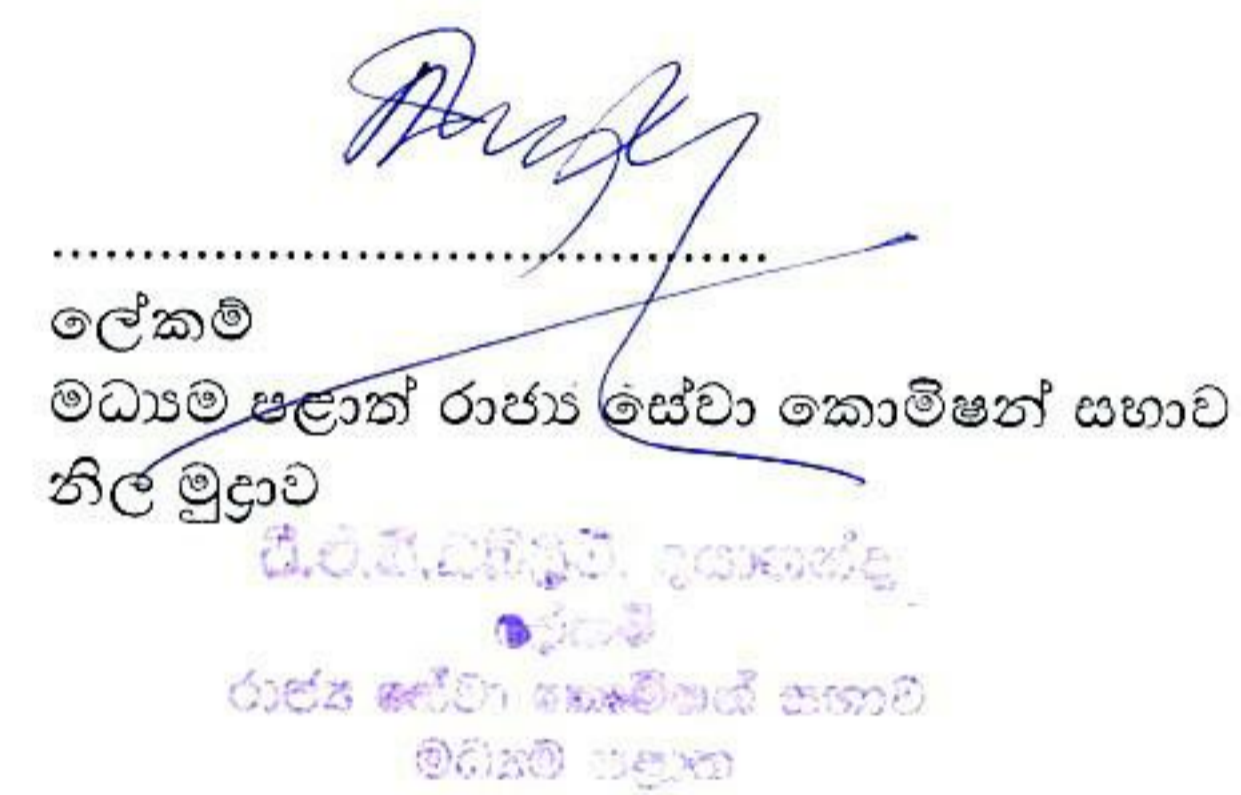 ..................................................
ලේකම්
මධ්‍යම පළාත් රාජ්‍ය සේවා කොමිෂන් සභාව
නිල මුද්‍රාව
දයානන්ද
ලේකම්
රාජ්‍ය සේවා කොමිෂන් සභාව
මධ්‍යම පළාත